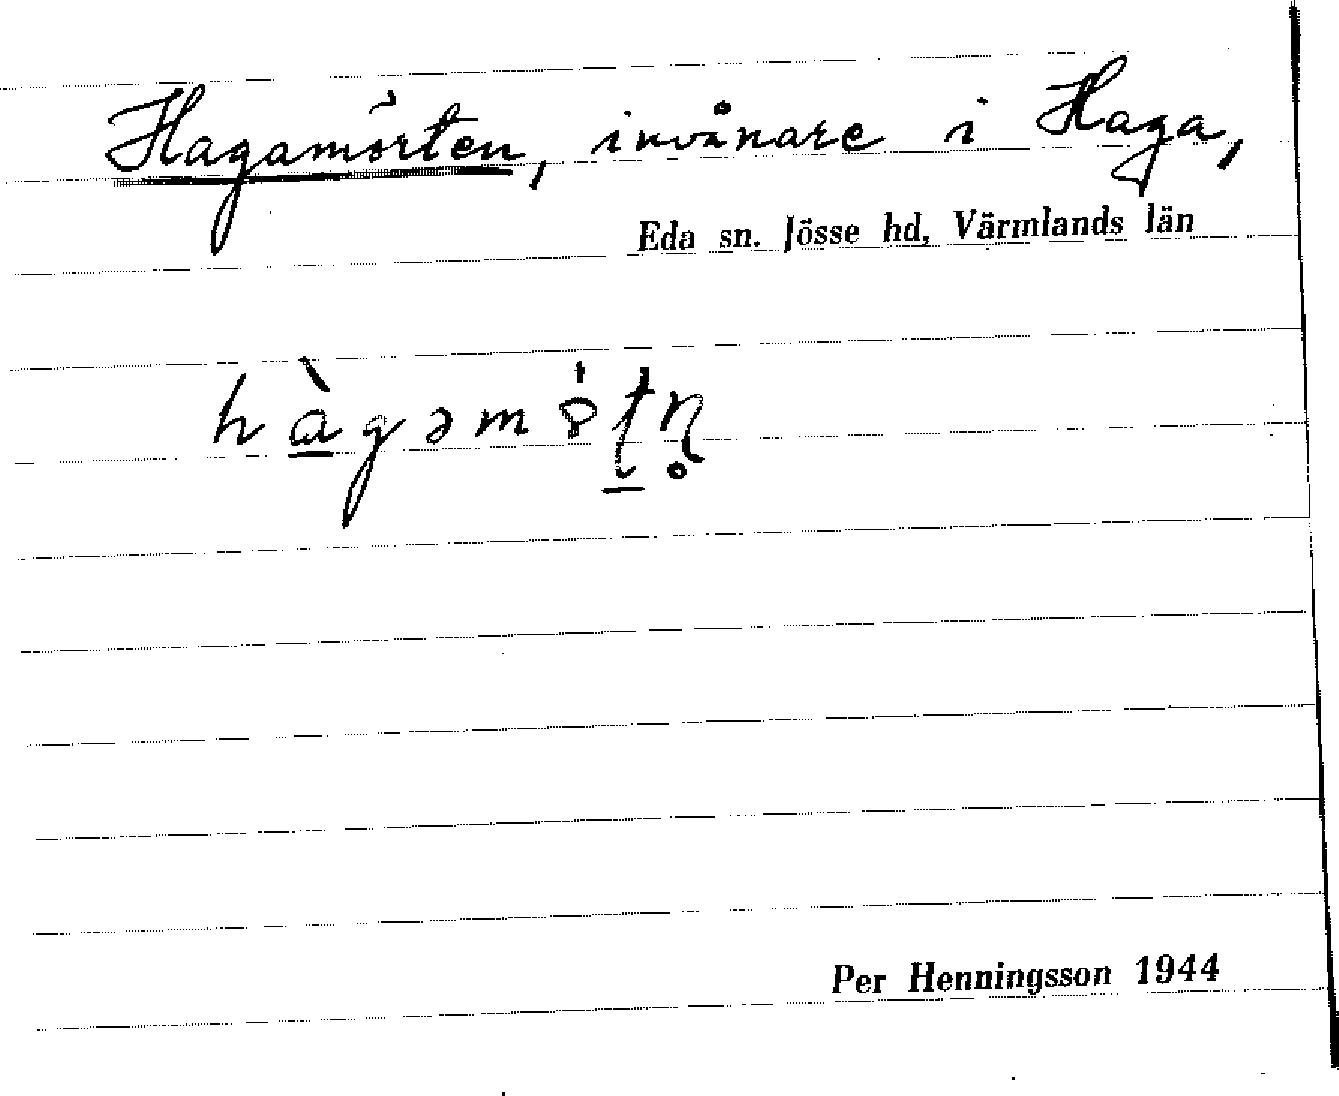 Hagamörten, invånare i Haga,
Eda sn. Jösse hd, Värmlands län
Per Henningsson 1944